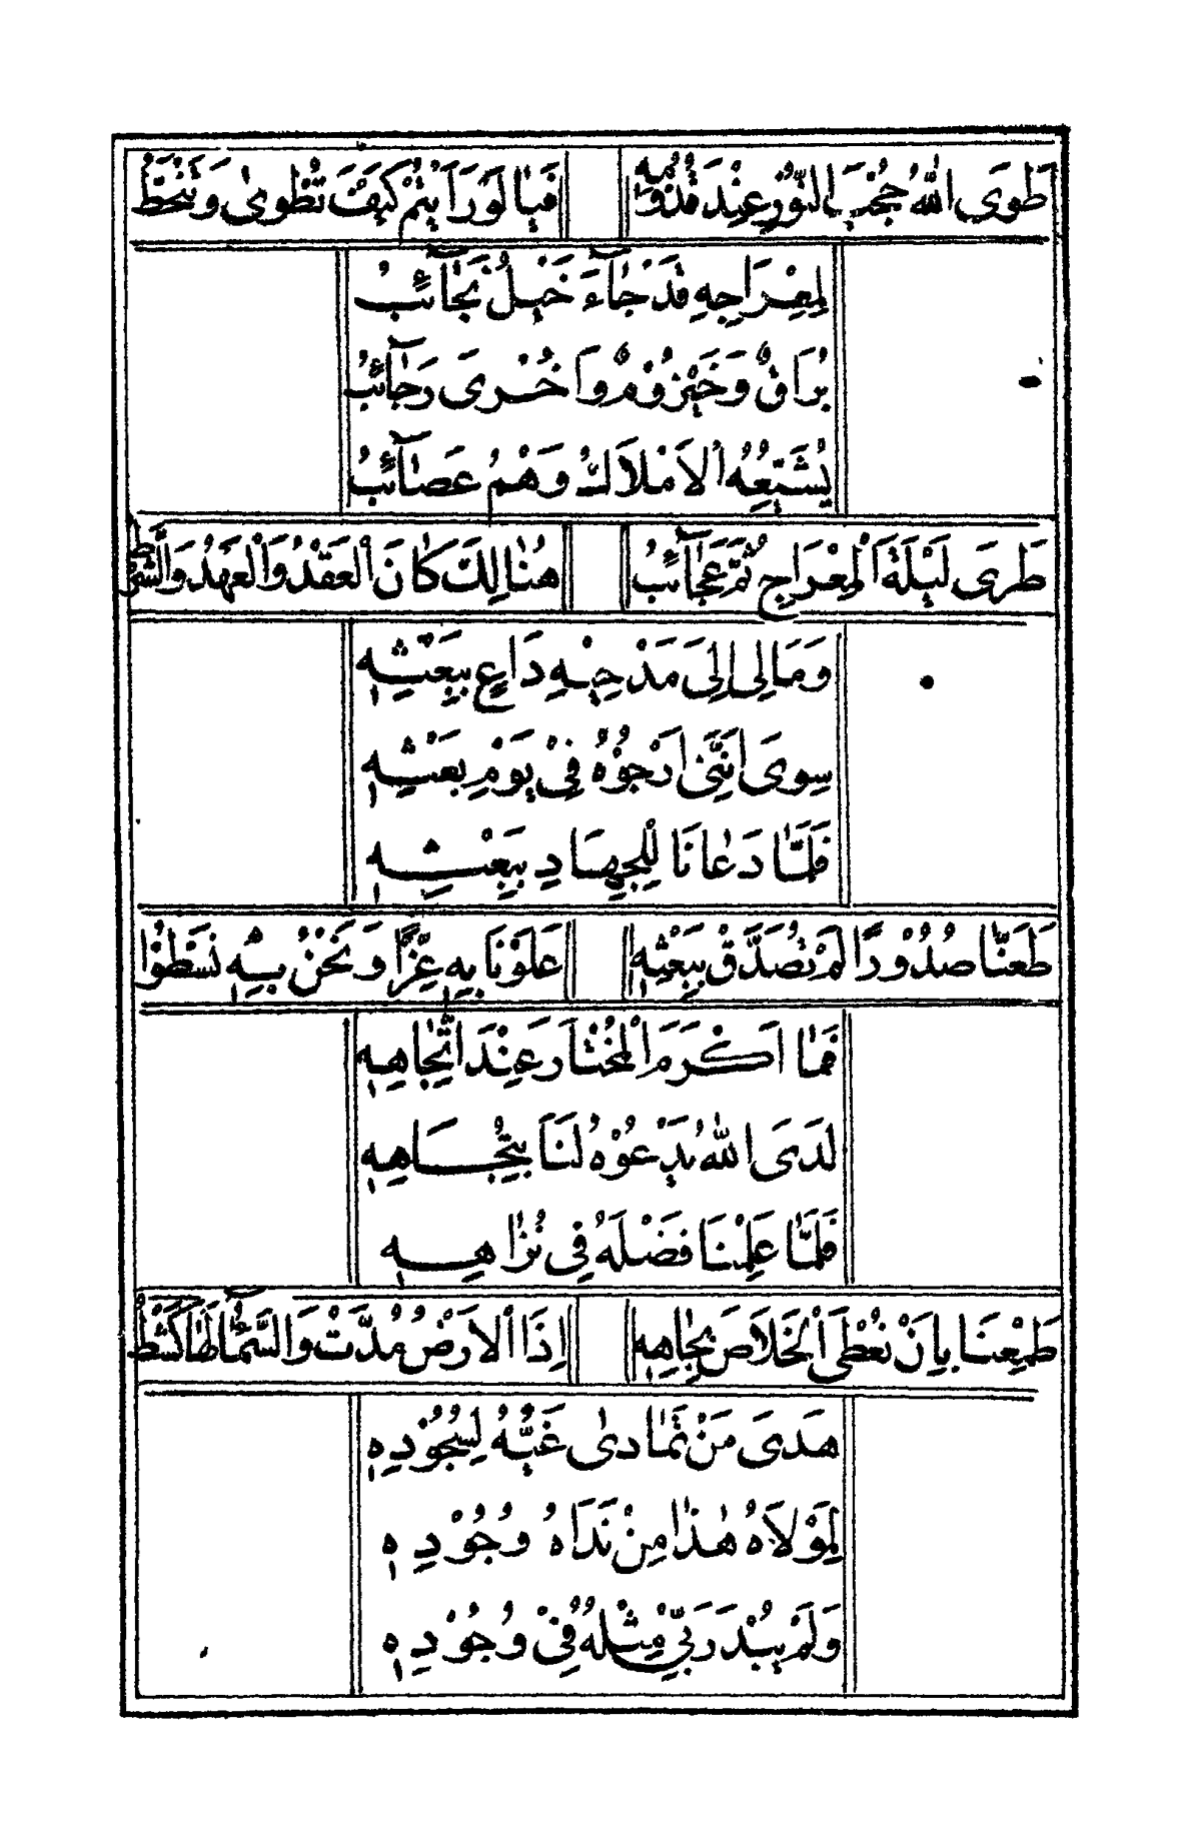 طَوَى اللّٰهُ حُجُبَ النُّوْرِ عِنْدَ قُدُوْمِهٖ فَيَا لَوْ رَاَيْتُمْ كَيْفَ تُطْوٰى وَتَنْحَطُّ
لِمِعْرَاجِهِ قَدْ جَآءَ خَيْلٌ نَجَآئِبُ
بُرَاقٌ وَحَيْزُوْمٌ وَاُخْرَى رَحَآئِبُ
يُشَيِّعُهُ الْاَمْلَاكُ وَهْمُ عَصَآئِبُ
طَرَى لَيْلَةَ الْمِعْرَاجِ ثَمَّ عَجَآئِبُ هُنَالِكَ كَانَ الْعَقْدُ وَالْعَهْدُ وَالشَّرْطُ
وَمَا لِى اِلِىَ مَدْحِيْهِ دَاعٍ بِبَعْثِهٖ
سِوَى اَنَّنِىْ اَرْجُوْهُ فِىْ يَوْمِ بَعْثِهٖ
فَلَمَّا دَعَانَا لِلْجِهَادِ بِبَعْثِهٖ
طَعَنَّا صُدُوْرًا لَمْ تُصَدِّقْ بِبَعْثِهٖ عَلَوْنَا بِهٖ عِزًّا وَنَحْنُ بِهٖ نَسْطُوْا
فَمَا اَكْرَمَ الْمُخْتَارَ عِنْدَ اتِّجَاهِهٖ
لَدَى اللّٰهِ يَدْعُوْهُ لَنَا بِتُجَاهِهٖ
فَلَمَّا عَلِمْنَا فَضْلَهُ فِى نُزَاهِهٖ
طَمِعْنَا بِاَنْ نُعْطَى الْخَلَاصَ بِجَاهِهٖ اِذَا الْاَرْضُ مُدَّتْ وَالسَّمَآءُ لَهَا كَشْطُ
هَدَى مَنْ تَمَادٰى غَيُّهُ لِسُجُوْدِهٖ
لِمَوْلَاهُ هٰذَا مِنْ نَدَاهُ وُجُوْدِهٖ
وَلَمْ يُبْدِ رَبِّىْ مِثْلَهُ فِىْ وُجُوْدِهٖ